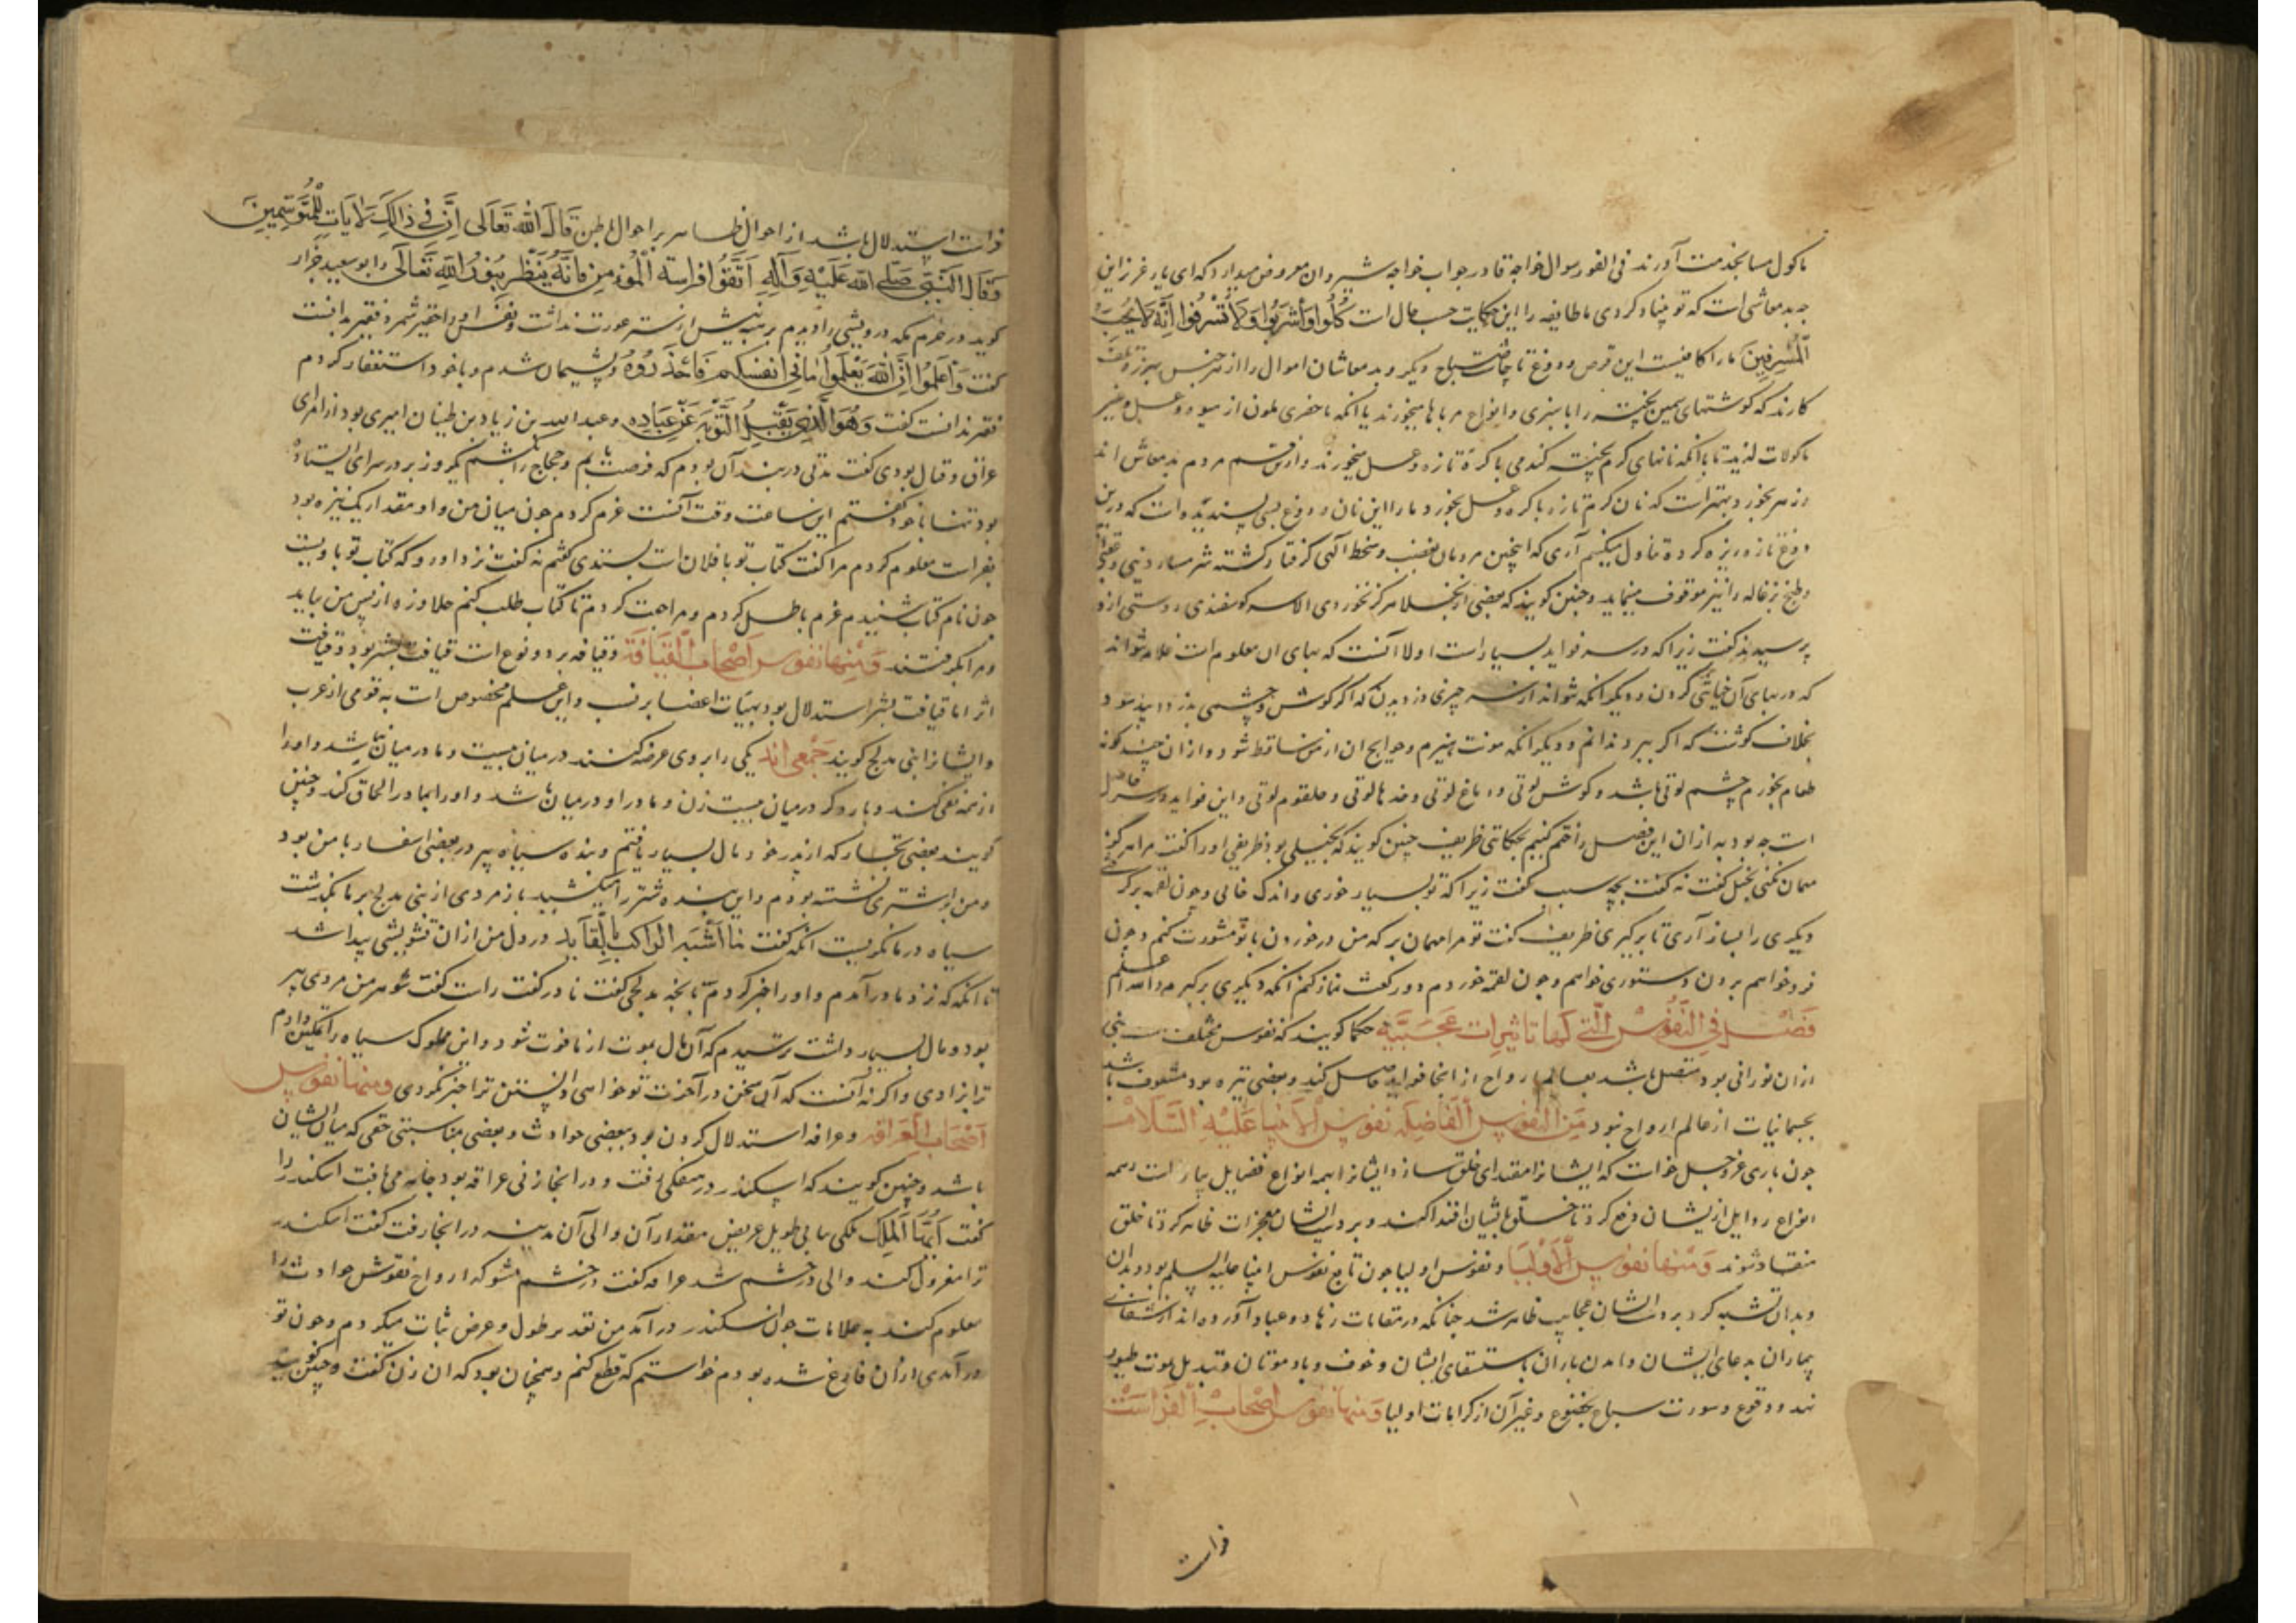 ماکول مسا بخدمت آورند فی الفور سوال خواجه قادر جواب خواجه شیروان معروض میدارد که ای یار عزیز این
چه بدمعاشی است که تو بنیاد کردی ما طایفه را این حکایت حسب حال است کُلُوا وَاشْرَبُوا وَلَا تُسْرِفُوا اِنَّهُ لَا یُحِبُّ
الْمُسْرِفِینَ ما را کافیست این قرص و دوغ تا چاشت صباح دیگر و بدمعاشان اموال را از هر جنس
کارند که گوشتهای سمین پخته را با سبزی و انواع مرباها میخورند یا آنکه ماحضری ملون از میوه و عسل و غیر
ماکولات لذیذ تا با آنکه نانهای گرم پخته گندمی با کره تازه و عسل میخورند و ازین قسم مردم بدمعاش اند
زهر بخورد بهتر است که نان گرم تازه با کره و عسل بخورد ما را این نان و دوغ بس پسندیده است که درین
دوغ تازه ریزه کرده تناول میکنیم آری که اینچنین مردمان بغضب و سخط الهی گرفتار گشته شرمسار دینی و عقبی
و طبخ بزغاله را نیز موقوف مینماید و چنین گویند که بعضی از بخلا هرگز نخوردی الا سر گوسفندی دوستی ازو
پرسید گفت زیرا که در سر فواید بسیار است اولا آنست که بهای آن معلوم است غلام نتواند
که در بهای آن خیانتی کردن و دیگر آنکه نتواند از سر چیزی دزدیدن که اگر گوش و چشمی بدزدد پدید شود
بخلاف گوشت که اگر ببرد ندانم و دیگر آنکه مونت هیزم و حوایج آن از من ساقط شود و ازان چند گونه
طعام بخورم چشم لونی باشد و گوش لونی و دماغ لونی و خدها لونی و حلقوم لونی و این فواید در سر حاصل
است چه بود به ازان این فصل را ختم کنیم بحکایتی ظریف چنین گویند که بخیلی بود ظریفی او را گفت مرا هرگز
مهمان نکنی بخل گفت نه گفت بچه سبب گفت زیرا که تو بسیار خوری و اندک خایی و چون لقمه برگرفتی
دیگری را بساز آری تا برگیری ظریف گفت تو مرا مهمان بر که من در خوردن با تو مشورت کنم و چون
فرو خواهم بردن دستوری خواهم و چون لقمه خوردم دو رکعت نماز کنم آنکه دیگری برگیرم والله اعلم
فَصْل فِی النُّفُوسِ الَّتی لَها تَاثیرات عَجیبَة حکما گویند که نفوس مختلفست بعضی
ازان نورانی بود متصل باشد بعالم ارواح از آنجا فواید حاصل کند و بعضی تیره بود مشعوف باشد
بجسمانیات از عالم ارواح نبود مِنَ النُّفُوسِ الْفَاضِلَه نُفُوسِ الْاَنْبِیا عَلَیْهِ السَّلَام
چون باری عز و جل خواست که ایشانرا مقتدای خلق سازد ایشانرا بهمه انواع فضایل بیاراست و همه
انواع رذایل از ایشان رفع کرد تا خلق بایشان اقتدا کنند و بر دست ایشان معجزات ظاهر کرد تا خلق
منقاد شوند وَمِنْهَا نُفُوسِ الْاَوْلِیَا و نفوس اولیا چون تابع نفوس انبیا علیه السلم بود بدان
و بدان تشبه کرد بر دست ایشان عجایب ظاهر شد چنانکه در مقامات زهاد و عباد آورده اند از شفای
بیماران بدعای ایشان و آمدن باران باستسقای ایشان و خوف و باد موتان و تبدیل موت طیور
وقوع و سورت سباع بخشوع و غیر آن از کرامات اولیا وَمِنْهَا نُفُوسِ اَصْحَابِ الْفَرَاسَتْ
فراست
فراست استدلال باشد از احوال ظاهر بر احوال باطن قَالَ اللّهُ تَعَالَی اِنَّ فِی ذَالِکَ لَایَاتٍ لِلْمُتَوَسِّمِینَ
وَقَالَ النَّبِی صَلَّی اللّه عَلَیْهِ وَآلِهِ اِتَّقُوا فِرَاسَة الْمُؤْمِنِ فَاِنَّهُ یَنْظُر بِنُورِ اللّهِ تَعَالَی و ابو سعید خراز
گوید در حرم مکه درویشی را دیدم بر تنش از ستر عورت نداشت و نفس او را حقیر شمرد فقیر بدانست
گفت وَاعْلَمُوا اَنَّ اللّهَ یَعْلَمُ مَا فِی اَنْفُسِکُمْ فَاحْذَرُوهُ و پشیمان شدم و با خود استغفار کردم
فقیر بدانست گفت وَهُوَ الَّذِی یَقْبَلُ التَّوْبَةَ عَنْ عِبَادِهِ و عبدالله بن زیاد بن ظبیان امیری بود از امرای
عراق و قتال بودی گفت مدتی دربند آن بودم که فرصت یابم و حجاج را بکشم یکروز بر در سرای ایستاده
بود تنها با خود گفتم این ساعت وقت آنست عزم کردم چون میان من و او مقدار یک نیزه بود
بفراست معلوم کردم مرا گفت کتاب تو با فلان است بستدی گفتم نه گفت نزد او رو که کتاب تو با ویست
چون نام کتاب شنیدم عزم باطل کردم و مراجعت کردم تا کتاب طلب کنم جلاوزه از پس من بیامد
و مرا بگرفتند وَمِنْهَا نُفُوس اَصْحَابِ الْقِیَافَة و قیافه بر دو نوع است قیافت بشر بود و قیافت
اثر اما قیافت بشر استدلال بود بهیئات اعضا بر نسب و این علم مخصوص است به قومی از عرب
و ایشانرا بنی مدلج گویند جَمْعی اند یکی را بر وی عرضه کنند در میان بیست و مادر میان نباشد و او را
از همه نفی کند و بار دگر در میان بیست زن و مادر او در میان باشد و او را بمادر الحاق کند و چنین
گویند بعضی تجار که از پدر خود مال بسیار یافتم و بنده سیاه پیر در بعضی اسفار با من بود
و من بر اشتری نشسته بودم و این بنده شتر را میکشید باز مردی از بنی مدلج بر ما بگذشت
سیاه در ما نگریست آنکه گفت مَا اَشْبَهَ الرَاکِب بِالْقَایِد در دل من ازان تشویشی پیدا شد
تا آنکه که نزد مادر آمدم و او را خبر کردم تا بچه مدلجی گفت مادر گفت راست گفت شوهر من مردی پیر
بود و مال بسیار داشت ترسیدم که آن مال بموت از ما فوت شود و این مملوک سیاه را تمکین دادم
ترا بزادی و اگر نه آنست که آن سخن در آخرت تو خواهی دانستن ترا خبر نکردی وَمِنْهَا نُفُوسِ
اَصْحَابِ الْعِرَافَه و عرافه استدلال کردن بود ببعضی حوادث و بعضی بمناسبتی خفی که میان ایشان
باشد و چنین گویند که اسکندر در مملکی رفت و در آنجا زنی عرافه بود جامه می بافت اسکندر را
گفت اَیُّهَا الْمَلِک ملکی یابی طویل عریض مقدار آن والی آن مدینه در آنجا رفت گفت اسکندر
ترا معزول کند والی در خشم شد عرافه گفت در خشم مشو که ارواح نفوس حوادث را
معلوم کند به علامات چون اسکندر درآمد من تقدیر طول و عرض ثبات میکردم و چون تو
درآمدی ازان فارغ شده بودم خواستم که قطع کنم و همچنان بود که آن زن گفت و چنین گویند